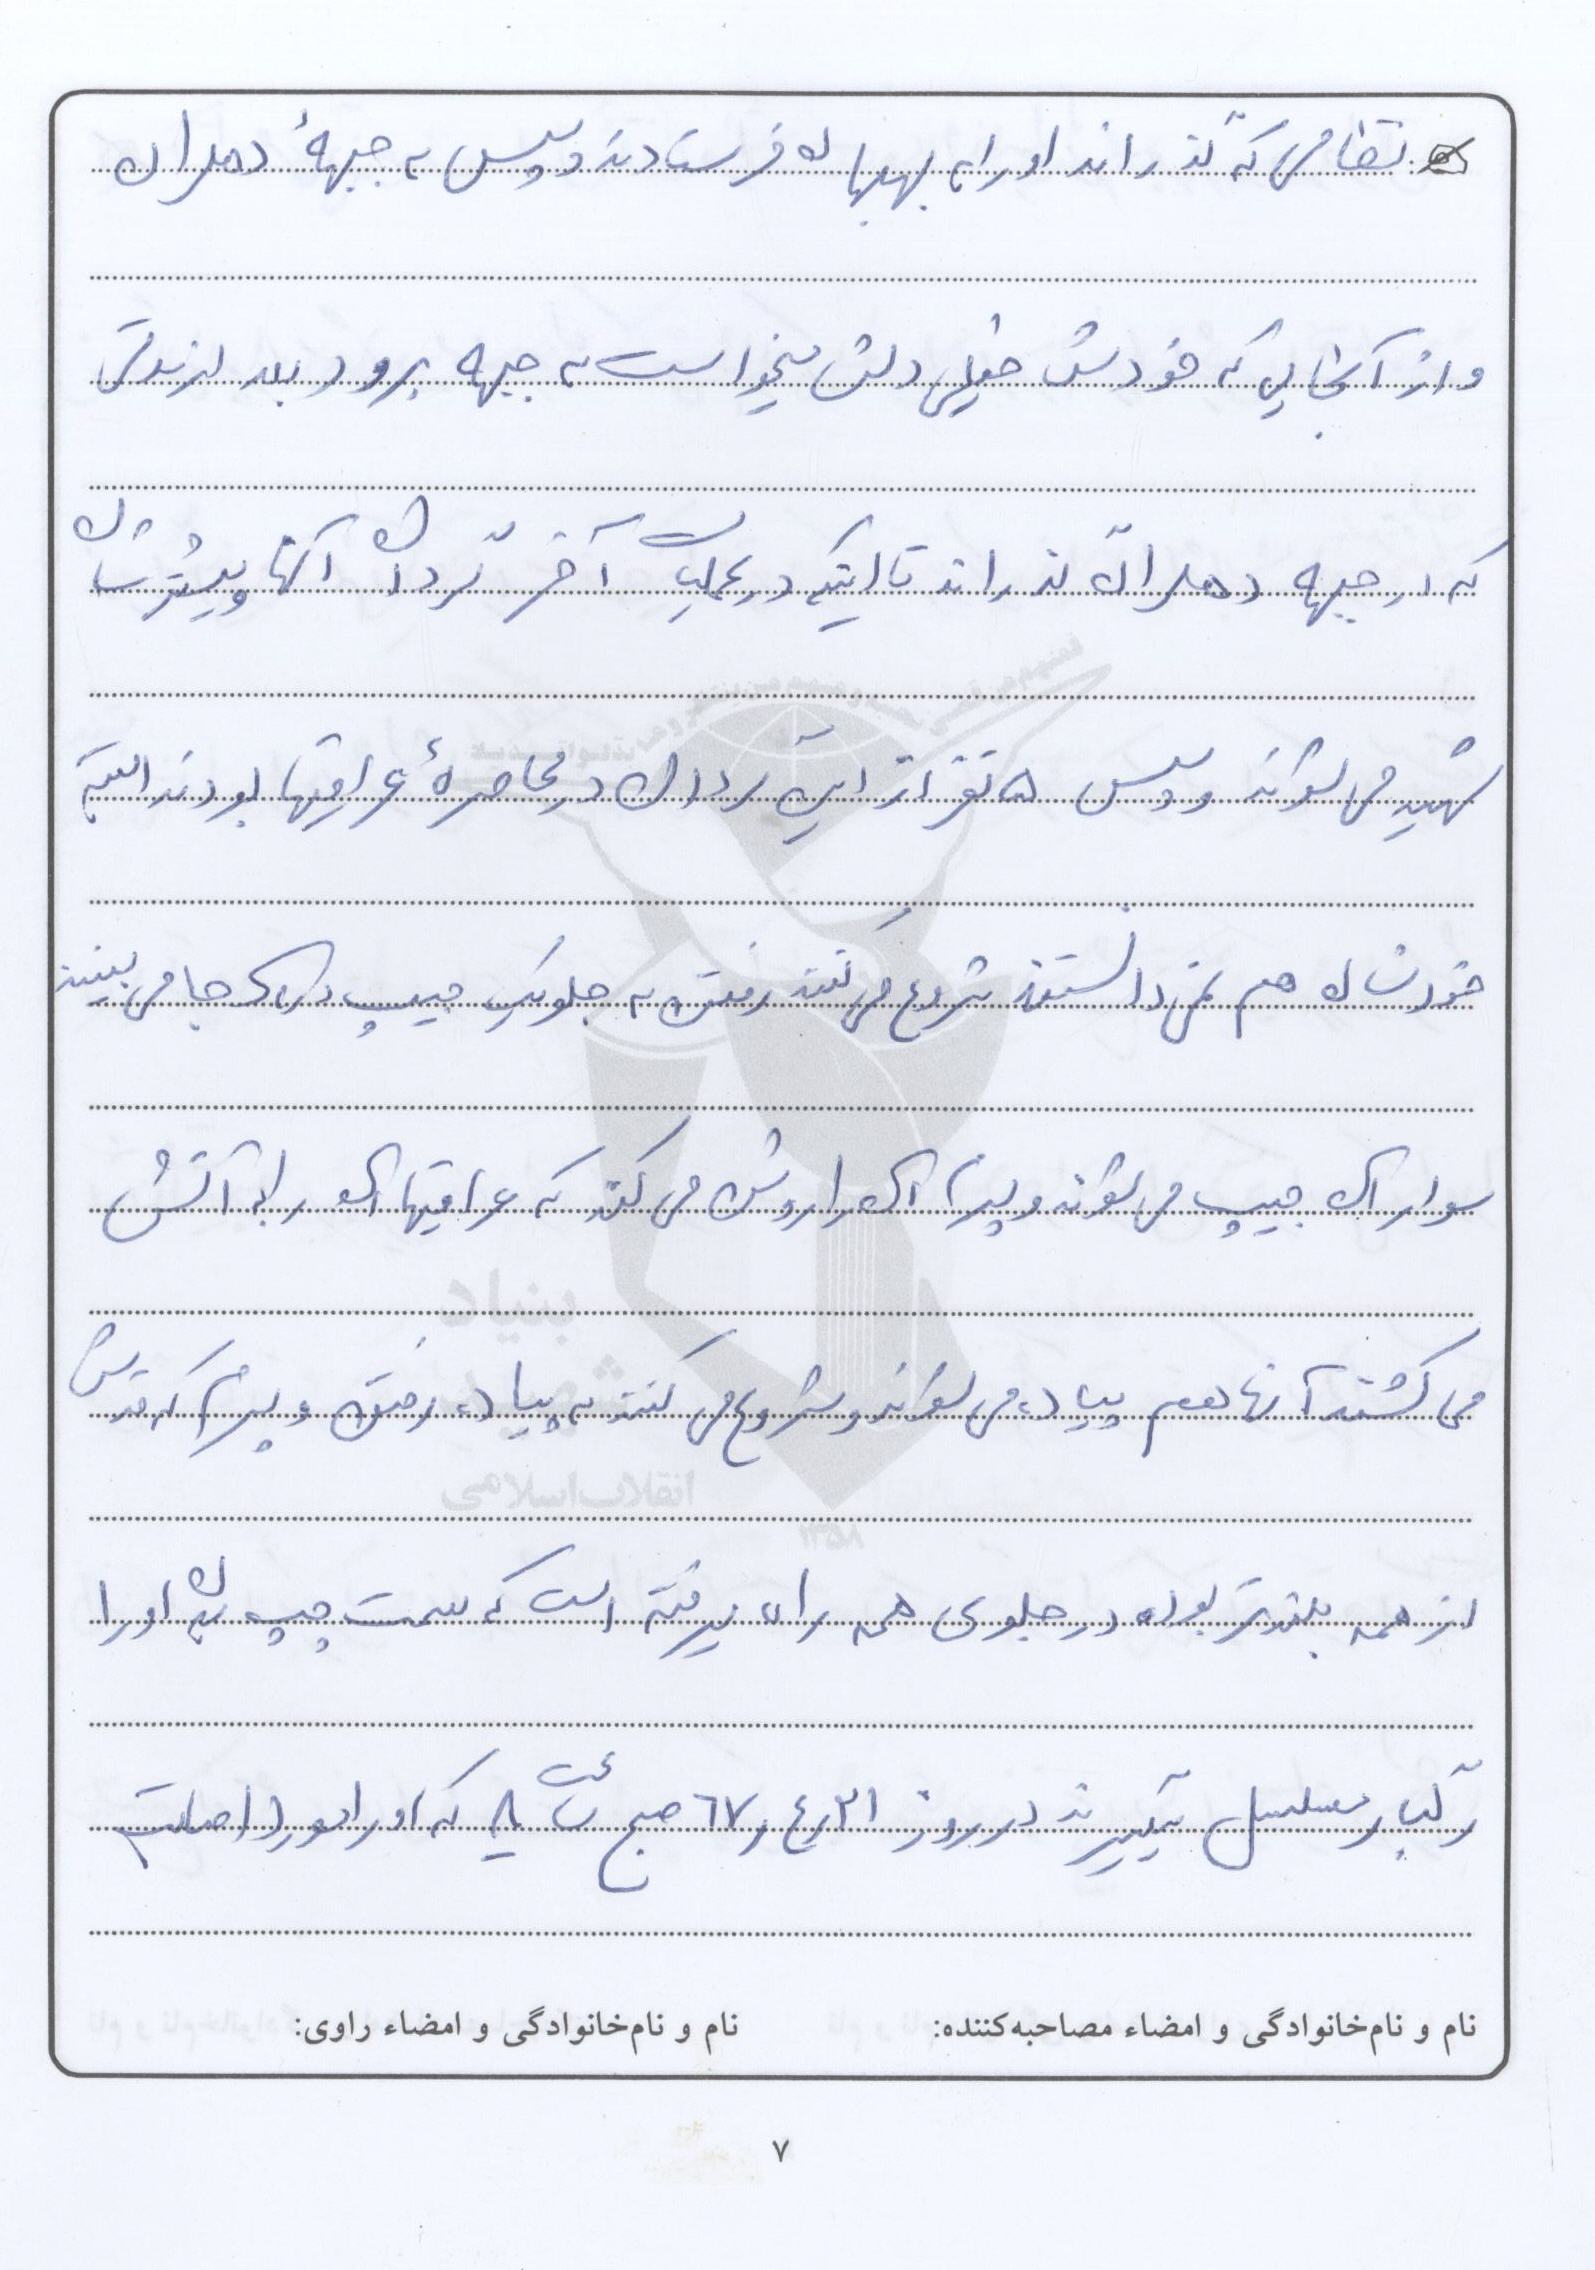 نظامی که گذراند او را به بهبهان فرستادند و سپس به جبههٔ دهلران
و از آنجایی که خودش خیلی دلش میخواست به جبهه برود بعد از مدتی
که در جبهه دهلران گذراند تا اینکه در عملیات آخر گردان آنها بیشترشان
شهید می شوند و سپس ۵ نفر از این گردان در محاصرهٔ عراقیها بودند البته
خودشان هم نمی دانستند شروع می کنند رفتن به جلو یک جیپ در آن جا می بینند
سوار آن جیپ می شوند و پسرم آن را روشن می کند که عراقیها آن را به آتش
می کشند آنها هم پیاده می شوند و شروع می کنند به پیاده رفتن و پسرم که قدش
از همه بلندتر بوده در جلوی همه راه میرفته است که سمت چپ بدن او را
رگبار مسلسل میگیرند در روز ۶۷/۴/۲۱ صبح ساعت ۸ که او را مورد اصابت
نام و نام‌خانوادگی و امضاء مصاحبه‌کننده: نام و نام‌خانوادگی و امضاء راوی:
۷
بنیاد
انقلاب اسلامی
۱۳۵۸